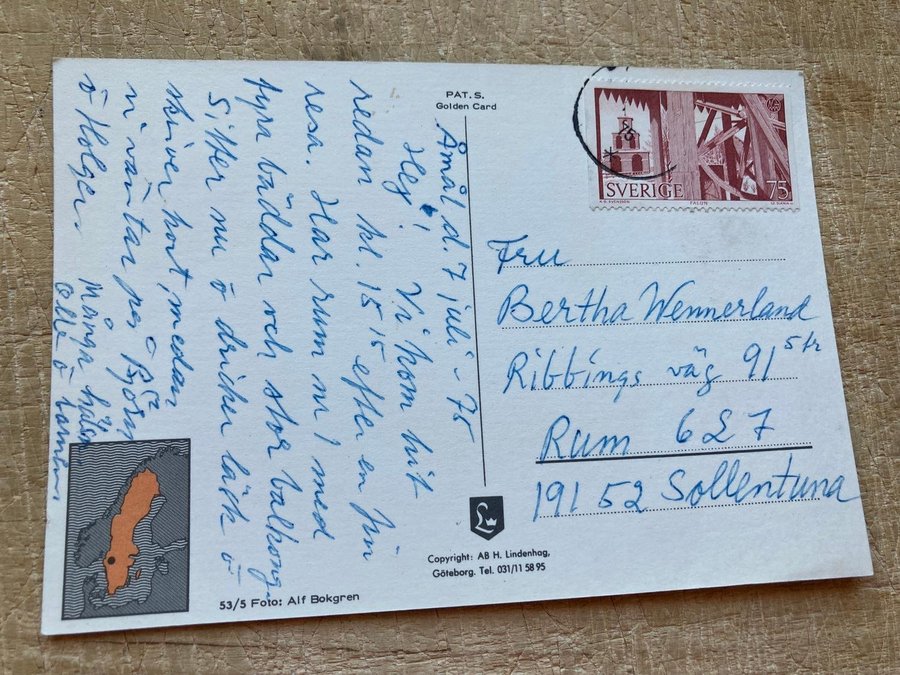 PAT. S.
Golden Card
Åmål d. 7 juli - 75
Hej! Vi kom hit
redan kl. 15 15 efter en fin
resa. Har rum nr 1 med
fyra bäddar och stor balkong.
Sitter nu o dricker läsk o
skriver kort, medan
vi väntar på Björn
o Holger.
Många häls.
Olle o
SVERIGE
75
FALUN
Fru
Bertha Wennerland
Ribbings väg 91 5 tr
Rum 627
191 52 Sollentuna
L
Copyright: AB H. Lindenhag,
Göteborg. Tel. 031/11 58 95
53/5 Foto: Alf Bokgren